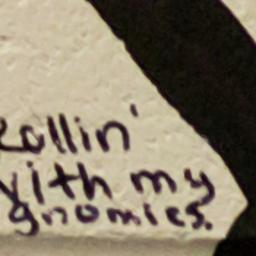 Rollin'
with my
gnomies.